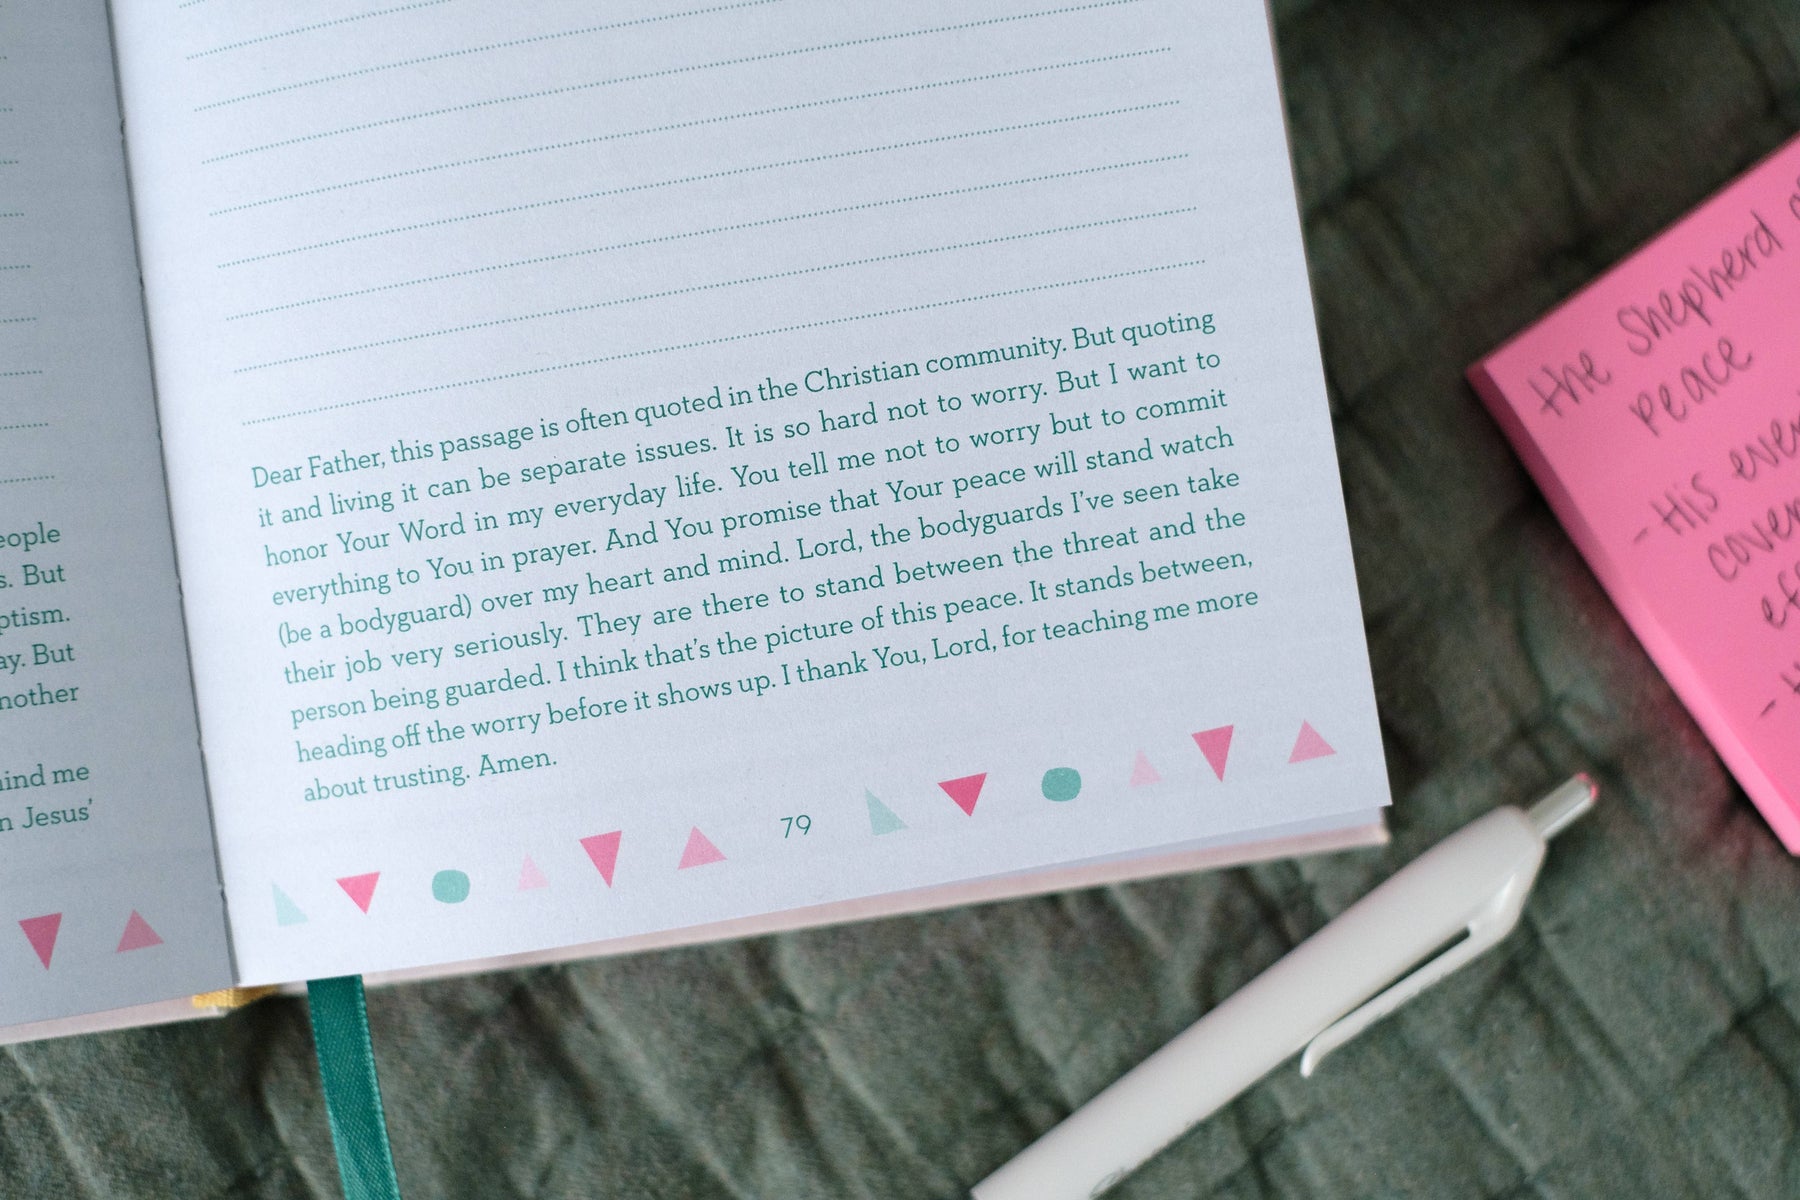 eople
s. But
ptism.
ay. But
nother
ind me
n Jesus'
Dear Father, this passage is often quoted in the Christian community. But quoting
it and living it can be separate issues. It is so hard not to worry. But I want to
honor Your Word in my everyday life. You tell me not to worry but to commit
everything to You in prayer. And You promise that Your peace will stand watch
(be a bodyguard) over my heart and mind. Lord, the bodyguards I've seen take
their job very seriously. They are there to stand between the threat and the
person being guarded. I think that's the picture of this peace. It stands between,
heading off the worry before it shows up. I thank You, Lord, for teaching me more
about trusting. Amen.
79
the Shepherd
peace
- His